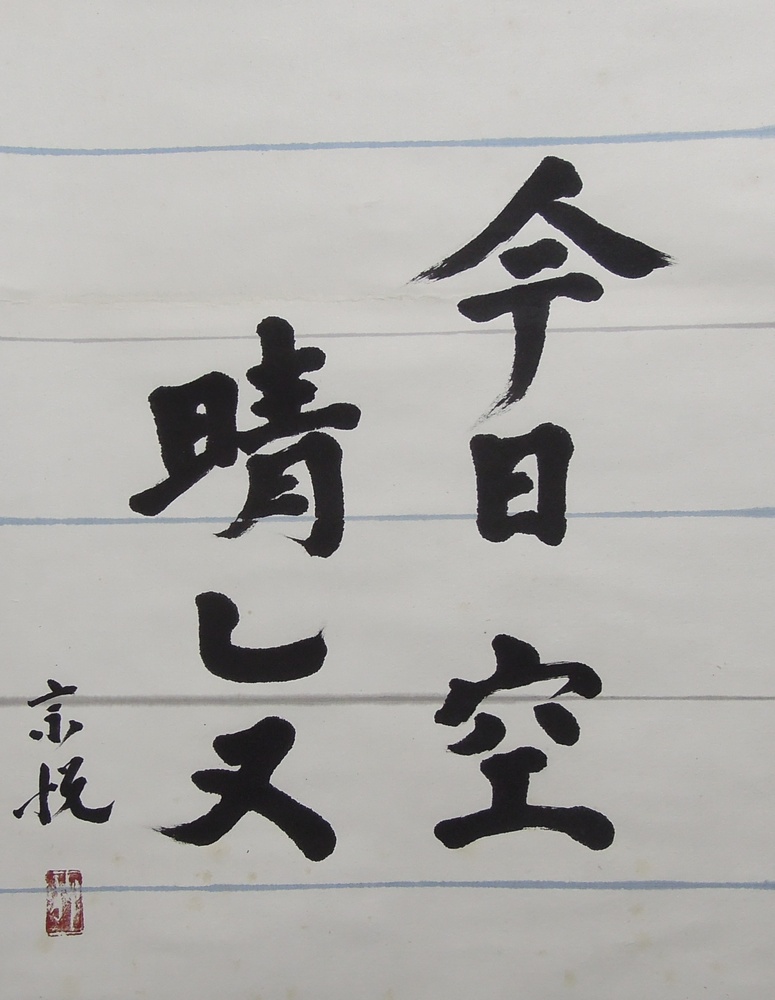 今日空
晴乚又
宗悦